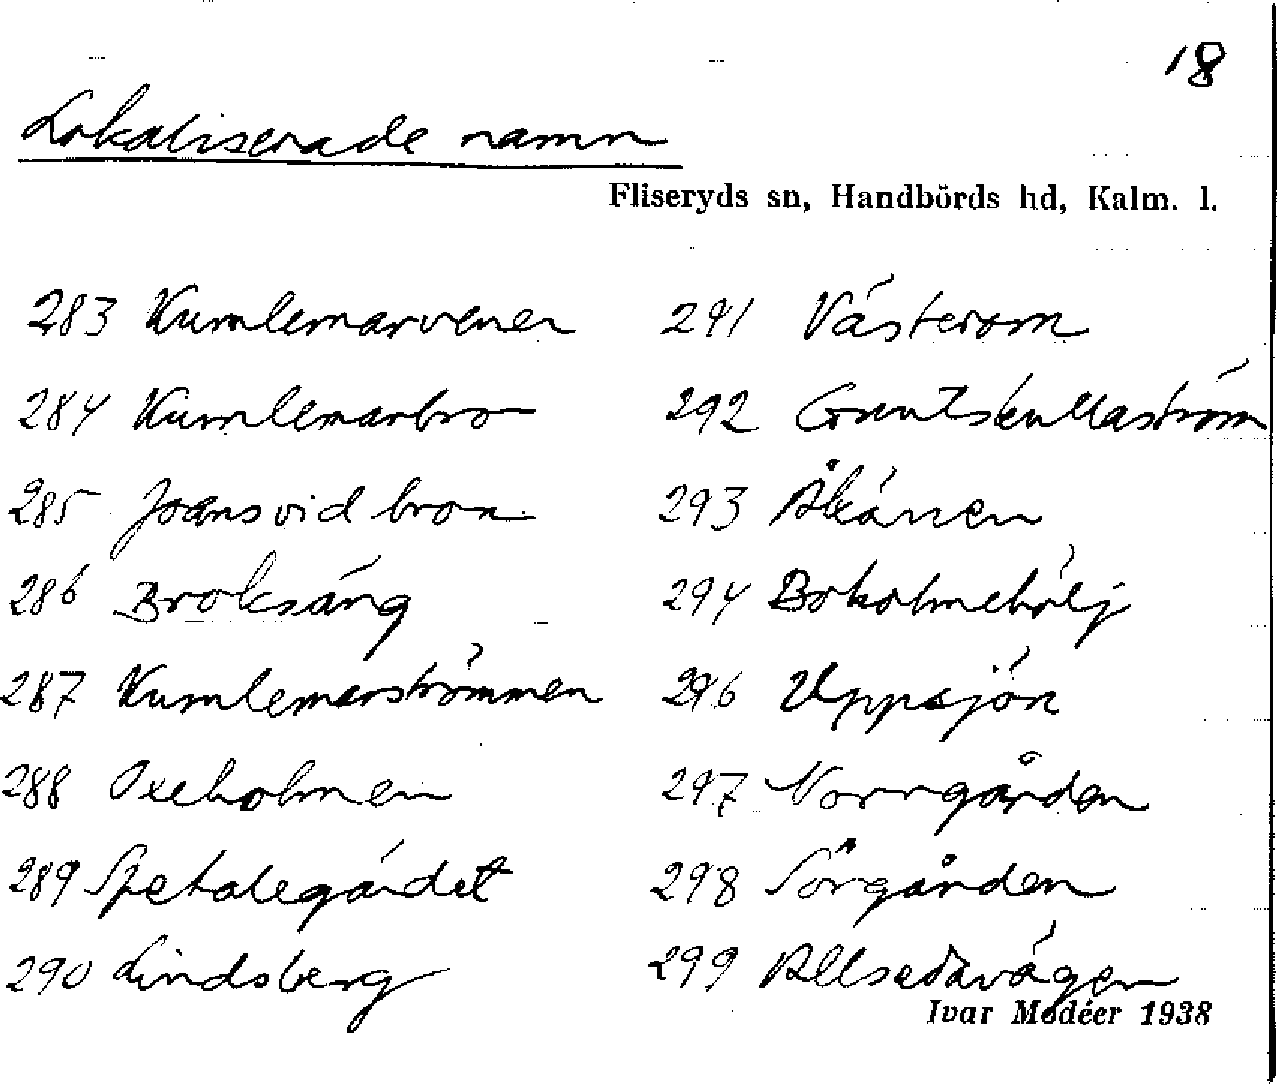 18
Lokaliserade namn
Fliseryds sn, Handbörds hd, Kalm. l.
283 Kumlemarvenen
284 Kumlemarbro
285 Joans vid bron
286 Broksäng
287 Kumlemarströmmen
288 Oxeholmen
289 Spetalegärdet
290 Lindsberg
291 Västerom
292
293
294 Bokolmehölj
296 Uppsjön
297 Norrgården
298 Sörgården
299 Allsedavägen
Ivar Modéer 1938